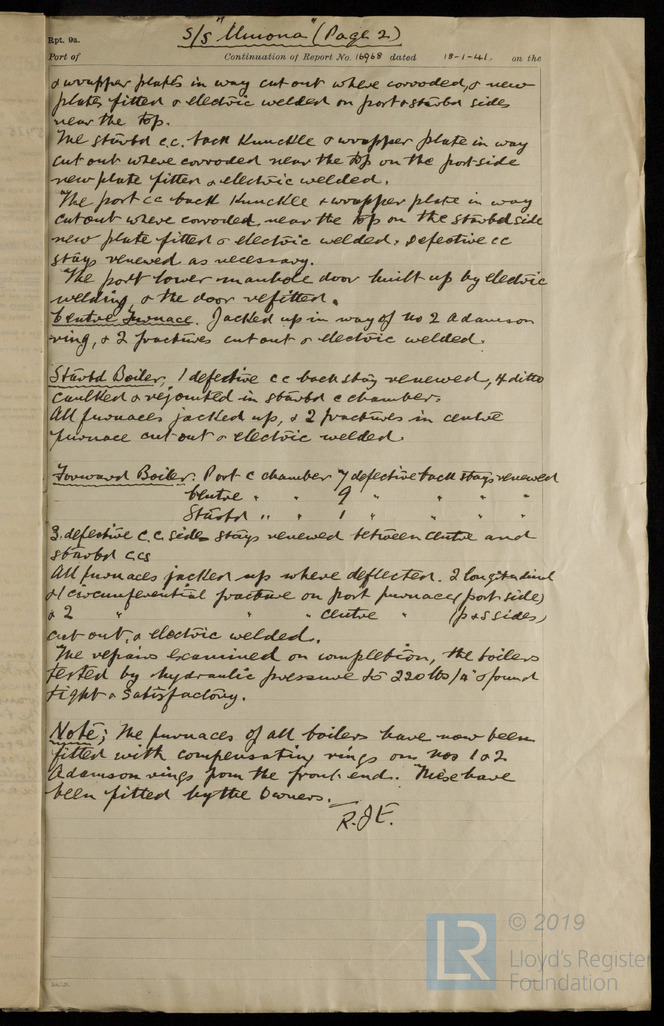 S/S "Umona" (Page 2)
Rpt. 9a.
Port of Continuation of Report No. 16968 dated 18-1-41. on the
& wrapper plates in way cut out where corroded, & new
plates fitted & electric welded on port & starbd sides
near the top.
The starbd c.c. back Knuckle & wrapper plate in way
cut out where corroded near the top on the port side
new plate fitted & electric welded.
The port cc back Knuckle & wrapper plate in way
cut out where corroded, near the top on the starbd side
new plate fitted & electric welded, defective cc
stays renewed as necessary.
The port lower manhole door built up by electric
welding, & the door refitted.
Centre Furnace. Jacked up in way of no 2 Adamson
ring, & 2 fractures cut out & electric welded.
Starbd Boiler; 1 defective cc back stay renewed, 4 ditto
caulked & rejointed in starbd c chamber.
All furnaces jacked up, & 2 fractures in centre
furnace cut out & electric welded.
Forward Boiler. Port c chamber 7 defective back stays renewed
Centre " " 9 " " " "
Starbd " " 1 " " " "
3. defective c.c. side stays renewed between centre and
starbd ccs
All furnaces jacked up where deflected. 2 longitudinal
& 1 circumferential fracture on port furnace (port side)
& 2 " " " centre " (p & s sides)
cut out, & electric welded.
The repairs examined on completion, the boilers
tested by hydraulic pressure to 220 lbs/□" & found
tight & satisfactory.
Note; The furnaces of all boilers have now been
fitted with compensating rings on nos 1 & 2
Adamson rings from the front end. These have
been fitted by the Owners.
R.J.E.
LR
© 2019
Lloyd's Register
Foundation